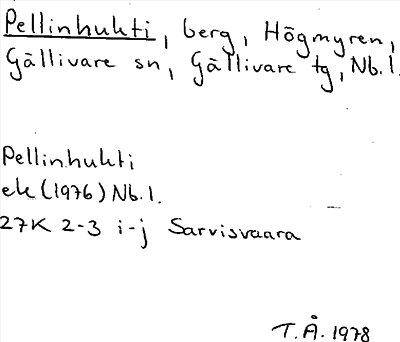 Pellinhuhti, berg, Högmyren,
Gällivare sn, Gällivare tg, Nb.l.
Pellinhuhti
ek (1976) Nb.l.
27K 2-3 i-j Sarvisvaara
T.Å. 1978